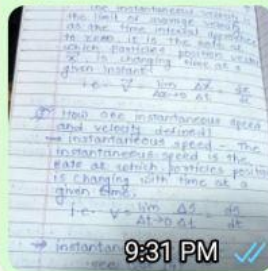 The instantaneous velocity is
the limit of average velocity
as the time interval approaches
to zero, it is the rate at
which particles position vector
'x' is changing at a
given instant.
i.e. V = lim Δt→0 Δx/Δt = dx/dt
How are instantaneous speed
and velocity defined?
→ instantaneous speed - The
instantaneous speed is the
rate at which particles position
is changing with time at a
given time.
i.e. V = lim Δt→0 Δs/Δt = ds/dt
→ instantan
9:31 PM